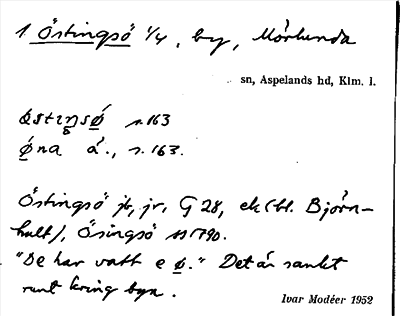 1 Östingsö 1/4, by, Mörlunda
sn, Aspelands hd, Klm. l.
östıŋsǿ s.163
ǿna ä., s. 163.
Östingsö jb, jr, G 28, ek (bl. Björn-
hult), Ösingsö 1790.
"De har vatt e ǿ." Det är sankt
runt kring byn.
Ivar Modéer 1952